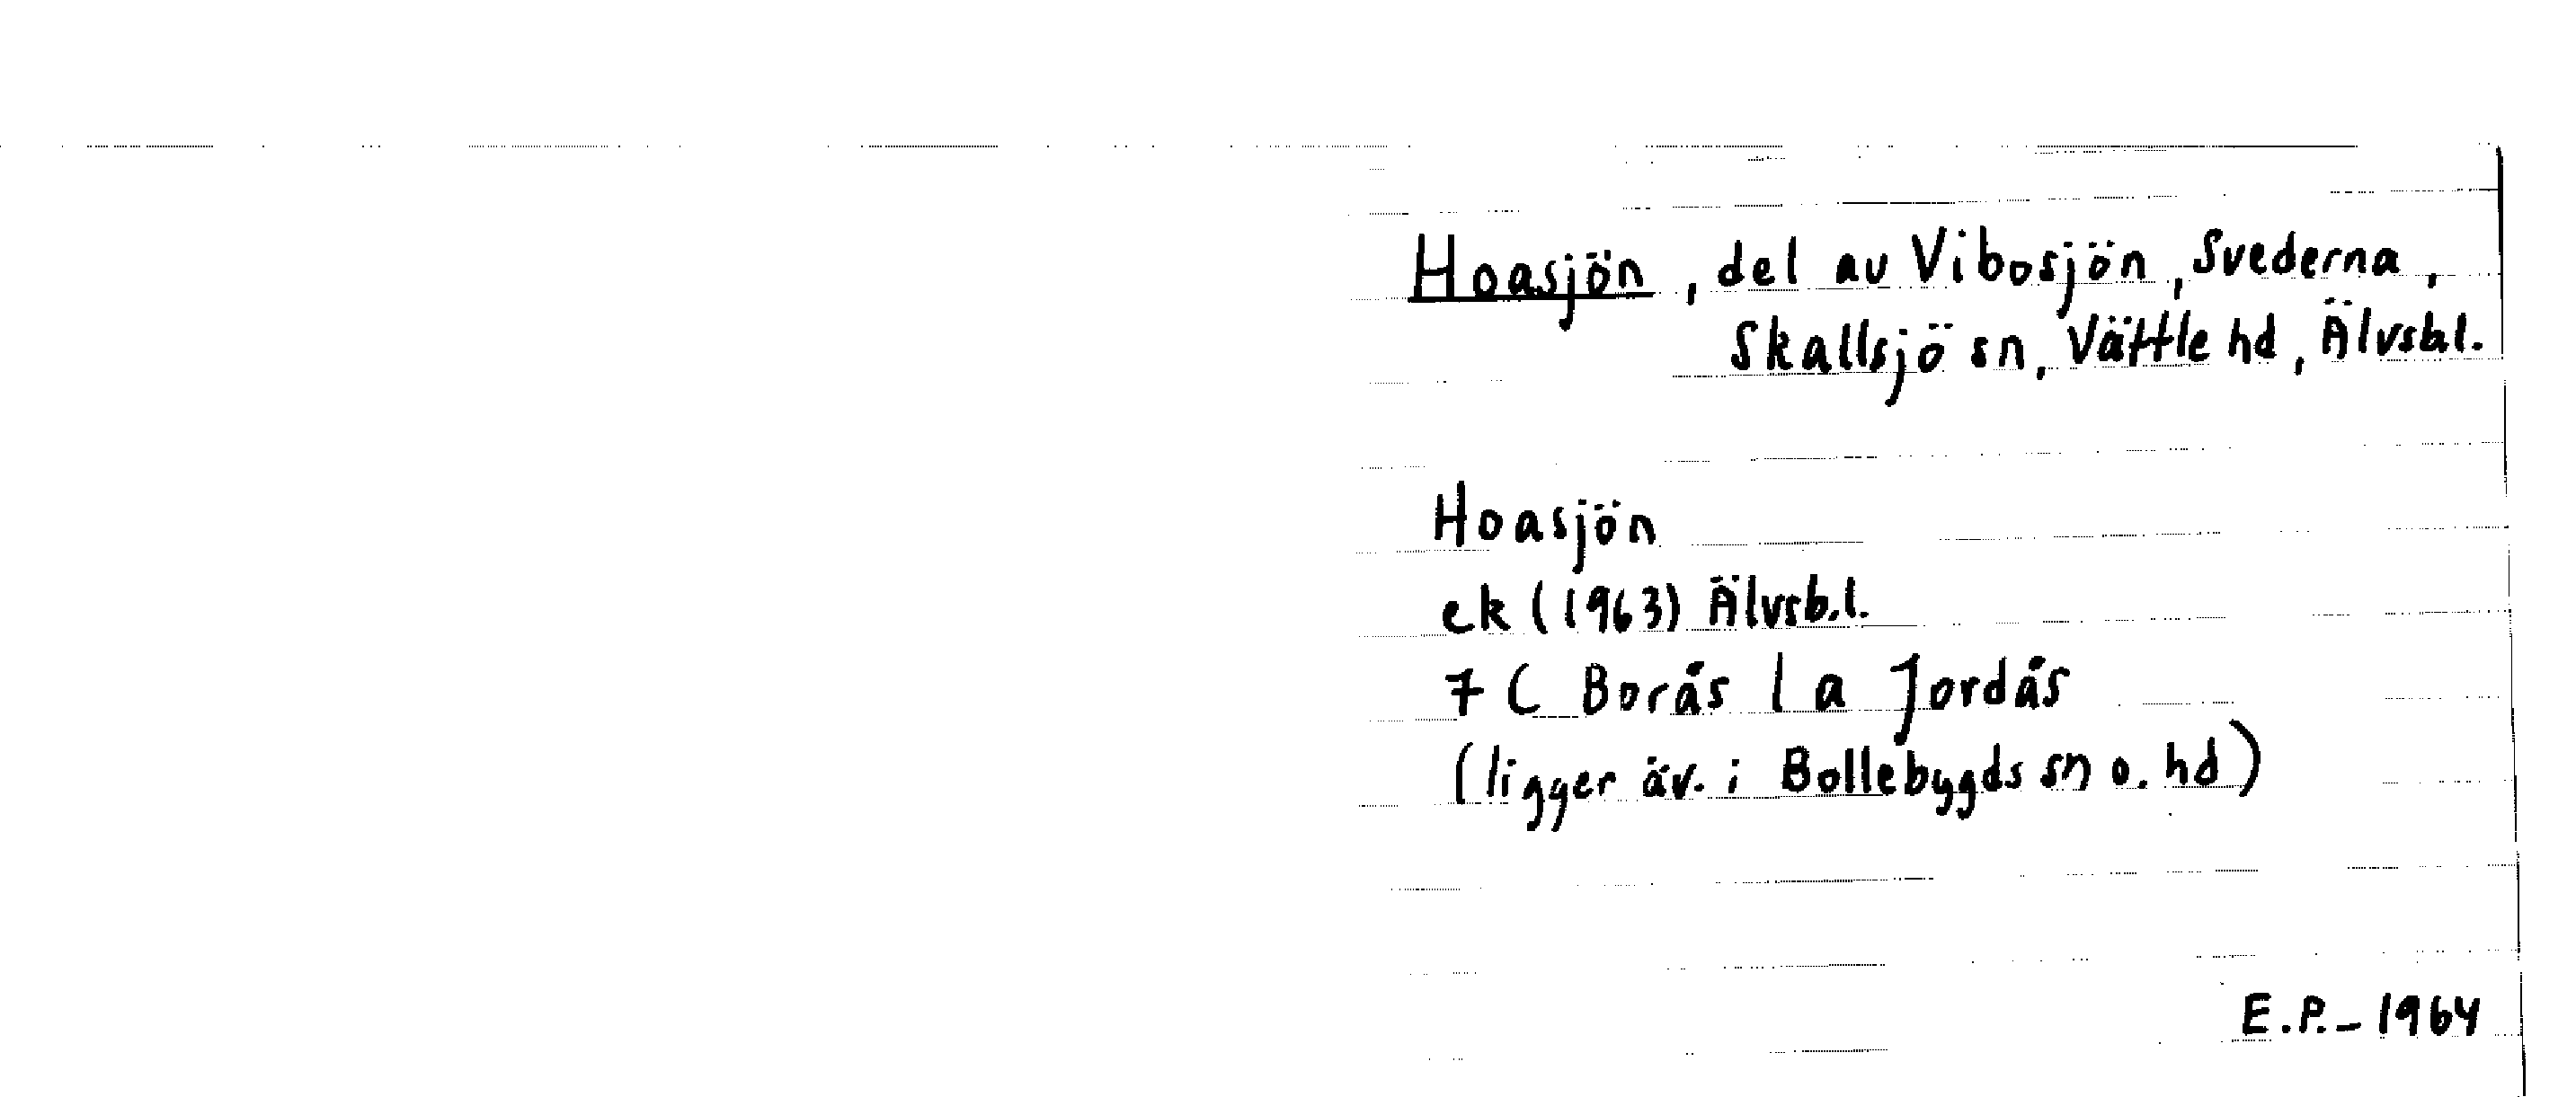 Hoasjön, del av Vibosjön, Svederna,
Skallsjö sn, Vättle hd, Älvsb.l.
Hoasjön
ek (1963) Älvsb.l.
7 C Borås 1 a Jordås
(ligger äv. i Bollebygds sn o. hd)
E.P. - 1964